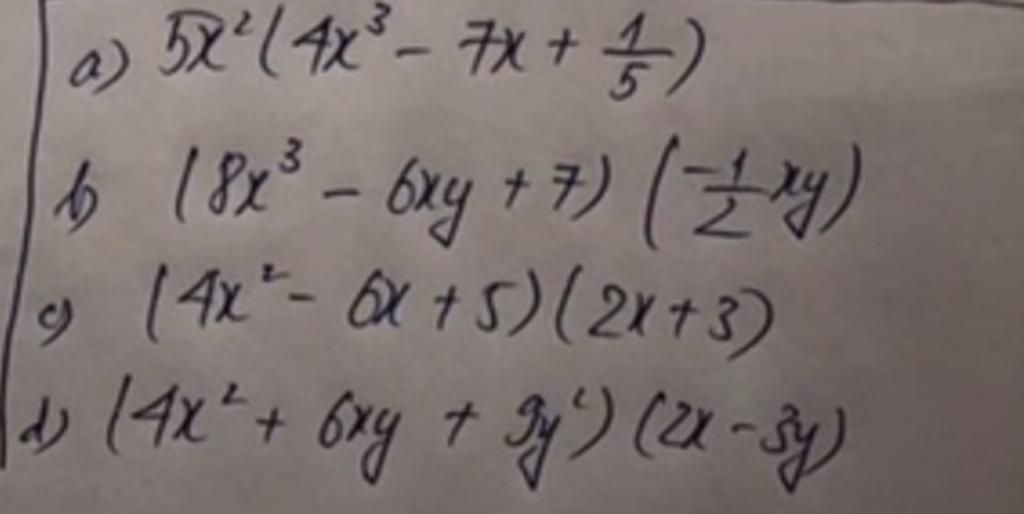 a) 5x²(4x³ - 7x + 1/5)
b) (8x³ - 6xy + 7) (-1/2 xy)
c) (4x² - 6x + 5)(2x + 3)
d) (4x² + 6xy + 9y²) (2x - 3y)